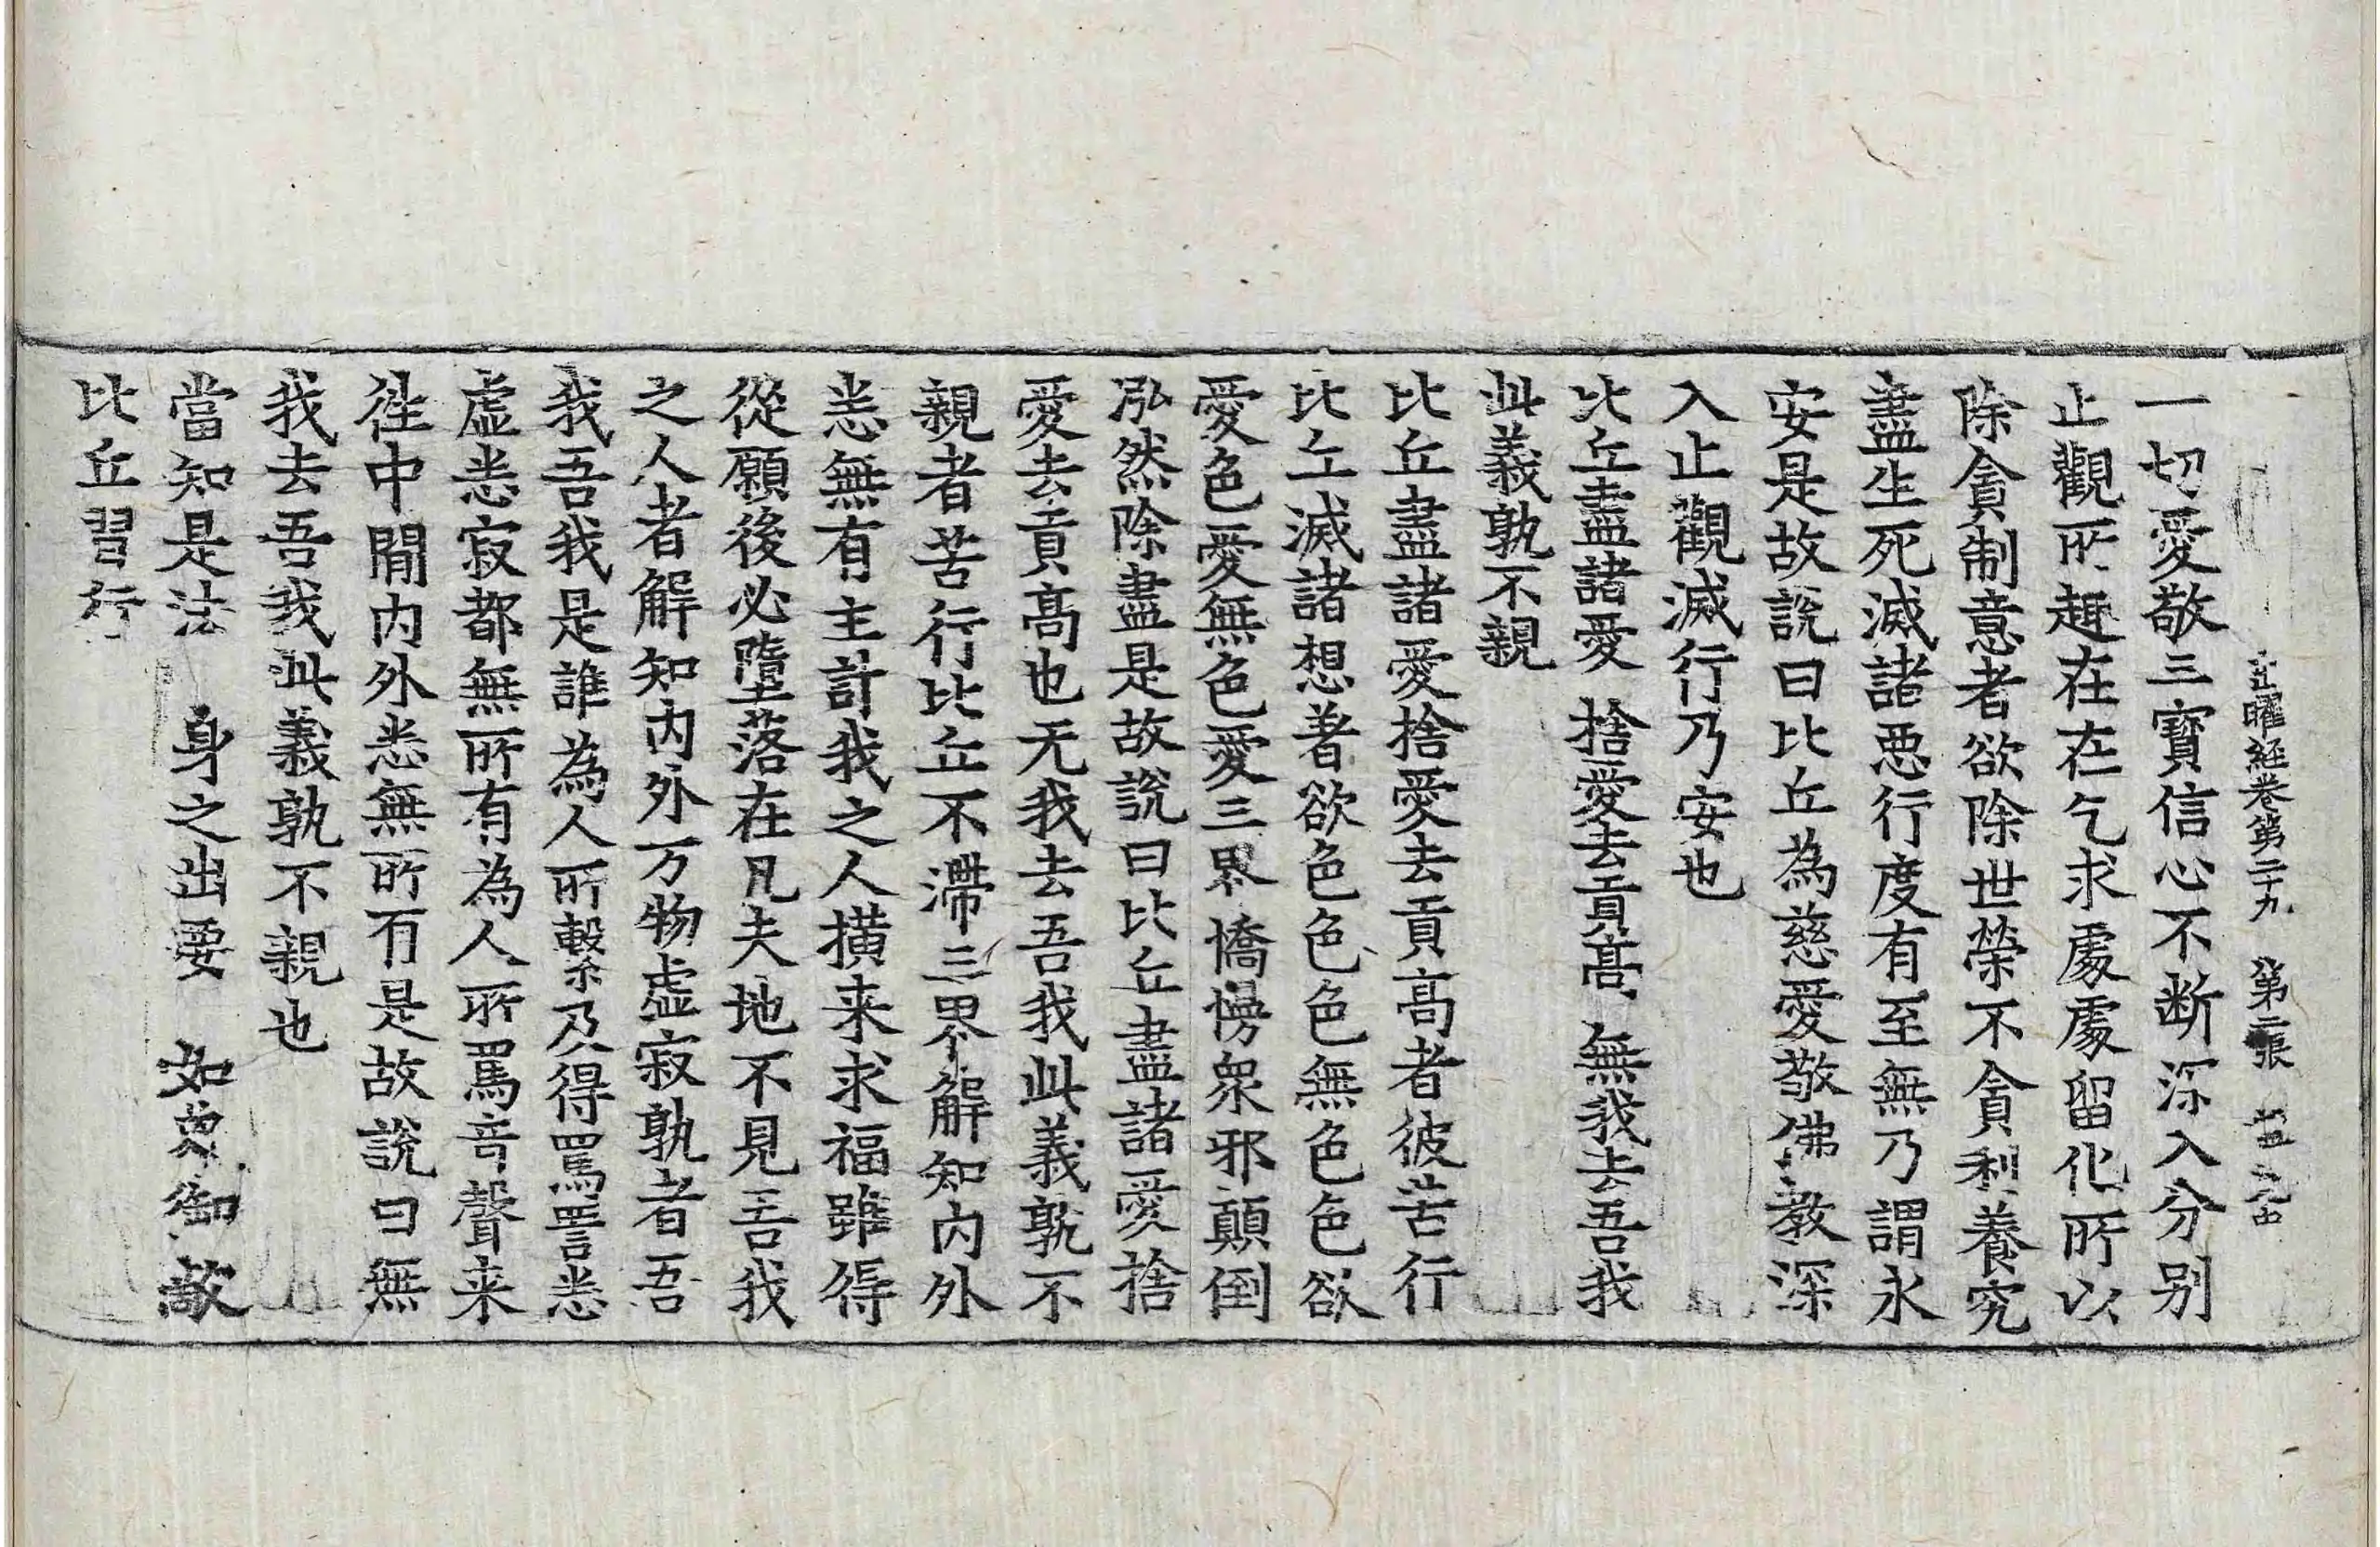 出曜經卷第二十九　第二張
一切愛敬三寶信心不断深入分别
止觀所趣在在乞求處處留化所以
除貪制意者欲除世榮不貪利養究
盡生死滅諸惡行度有至無乃謂永
安是故說曰比丘為慈愛敬佛教深
入止觀滅行乃安也
比丘盡諸愛　捨愛去貢髙　無我去吾我
此義孰不親
比丘盡諸愛捨愛去貢高者彼苦行
比丘滅諸想著欲色色色無色色欲
愛色愛無色愛三界憍慢衆邪顛倒
泓然除盡是故說曰比丘盡諸愛捨
愛去貢髙也无我去吾我此義孰不
親者苦行比丘不滯三界解知内外
悉無有主計我之人横来求福雖得
從願後必墮落在凡夫地不見吾我
之人者解知内外万物虚寂孰者吾
我吾我是誰為人所繫及得罵詈悉
虚悉寂都無所有為人所罵音聲来
往中間内外悉無所有是故說曰無
我去吾我此義孰不親也
當知是法　身之出要　如象御敵
比丘習行